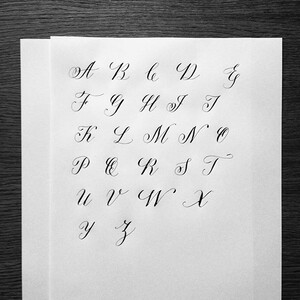 A B C D E
F G H I J
K L M N O
P Q R S T
U V W X
Y Z